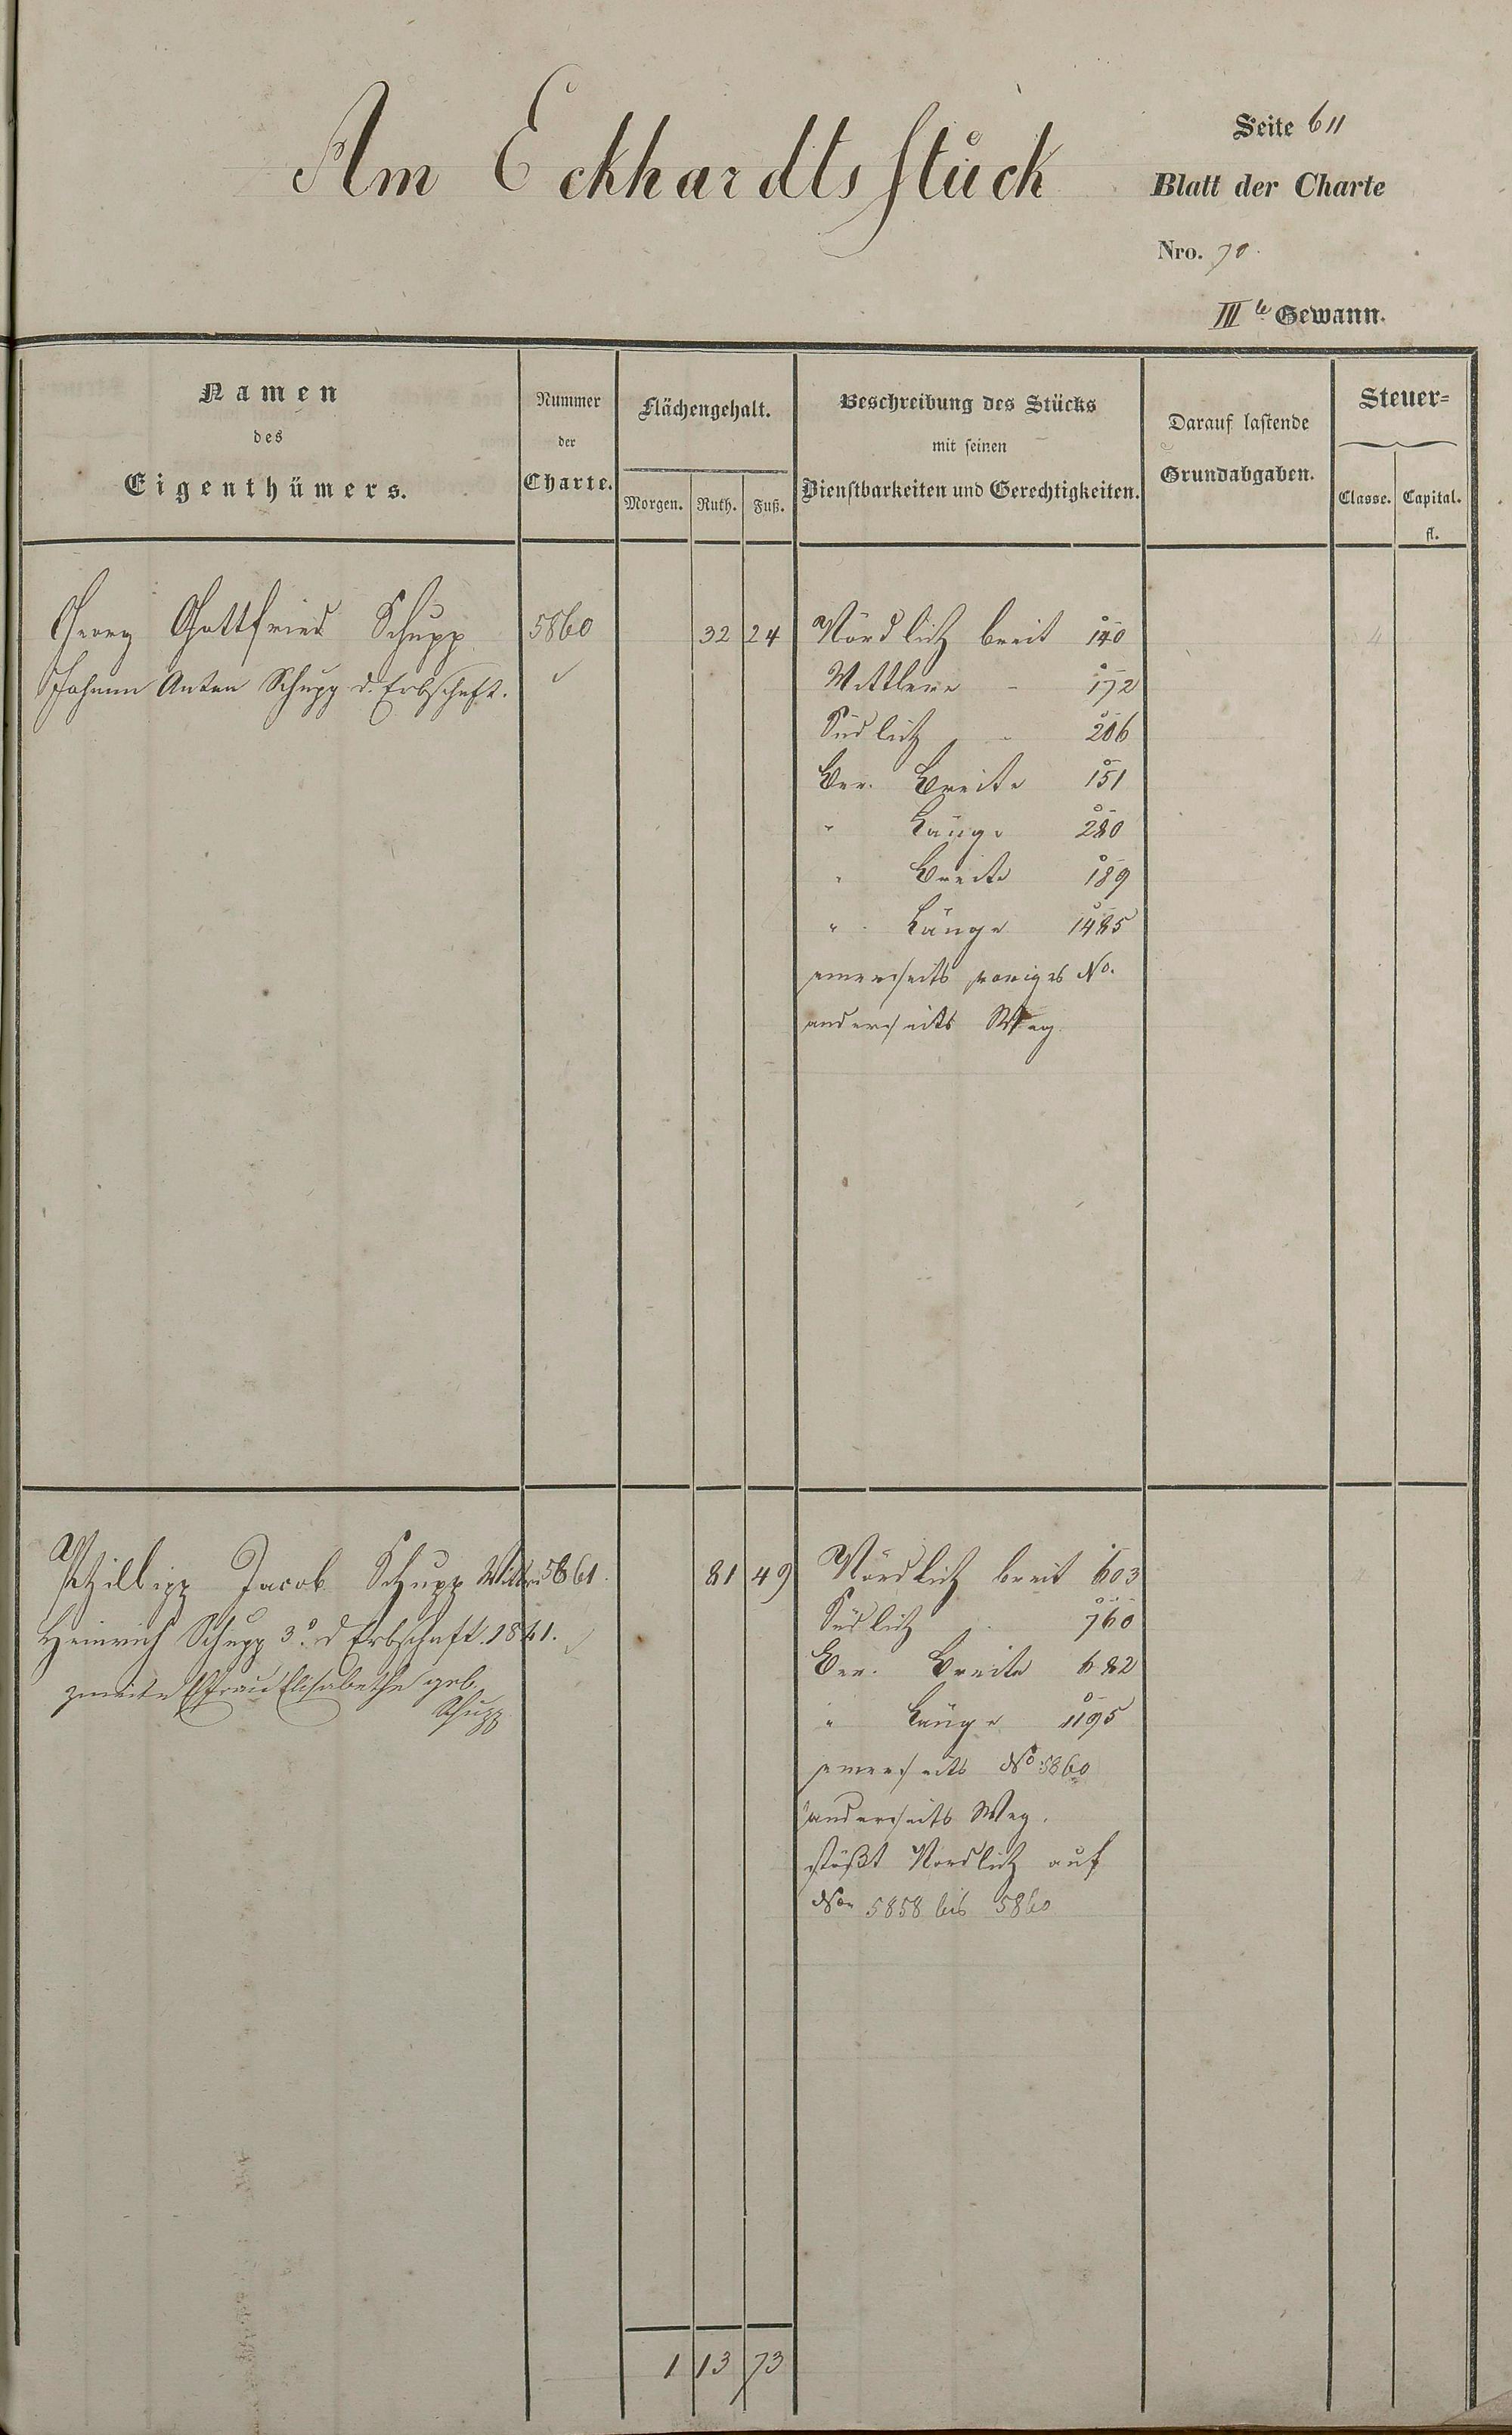 Am Eckhardtsstück
Seite 611
Blatt der Charte
Nro. 70.
III te Gewann.
Namen
des
Eigenthümers.
Nummer
der
Charte.
Flächengehalt.
Morgen. Ruth. Fuß.
Beschreibung des Stücks
mit seinen
Dienstbarkeiten und Gerechtigkeiten.
Darauf lastende
Grundabgaben.
Steuer=
Classe. Capital.
fl.
Georg Gottfried Schupp 5860 32 24 Nördlich breit 140
Johann Anton Schupp d. Erbschaft.
Mittlere - 172
Südlich " 206
Ver. Breite 151
" Länge 280
" Breite 189
" Länge 1485
einerseits voriges No.
anderseits Weg
Philipp Jacob Schupp Wittwe 5861. 81 49 Nördlich breit 603
Heinrich Schupp 3r d Erbschaft. 1841.
zweite Efrau Elisabethe geb.
Schupp
Südlich 760
Ver. Breite 682
" Länge 1195
einerseits No 5860
anderseits Weg.
stößt Nordlich auf
Non 5858 bis 5860
1 13 73